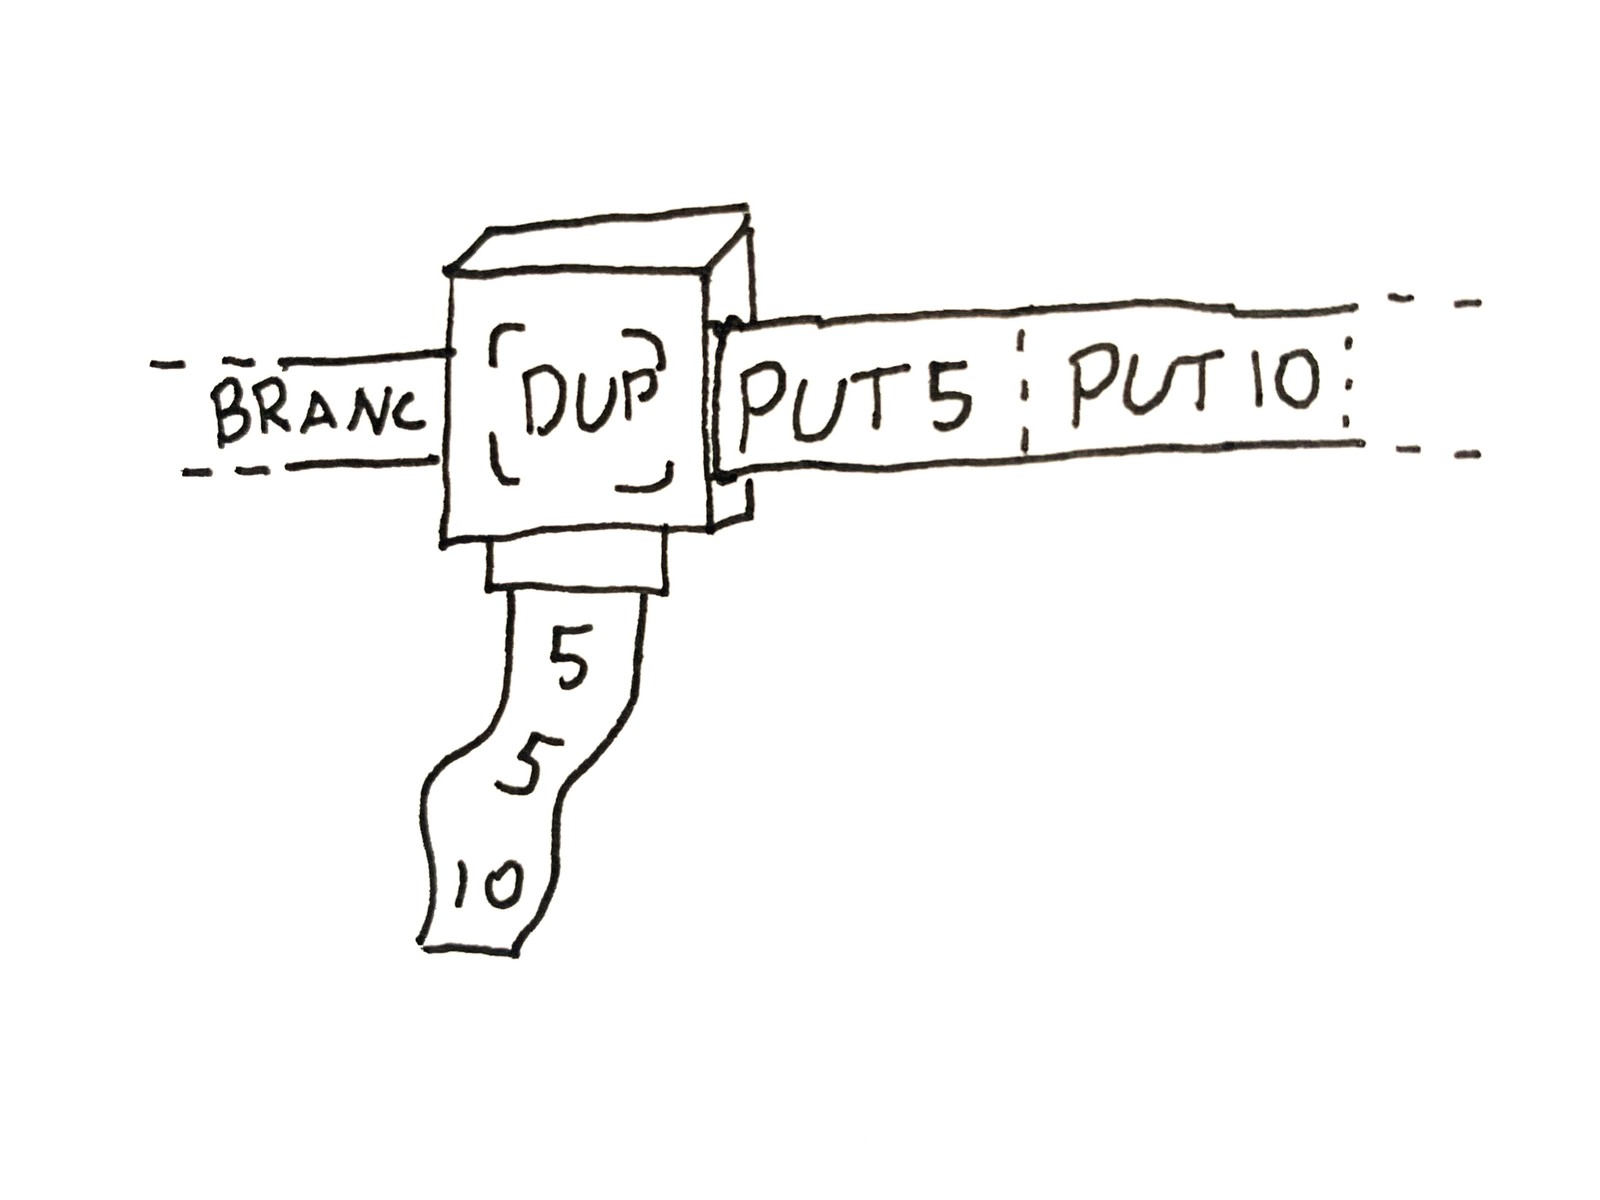 BRANC DUP PUT 5 PUT 10
5
5
10